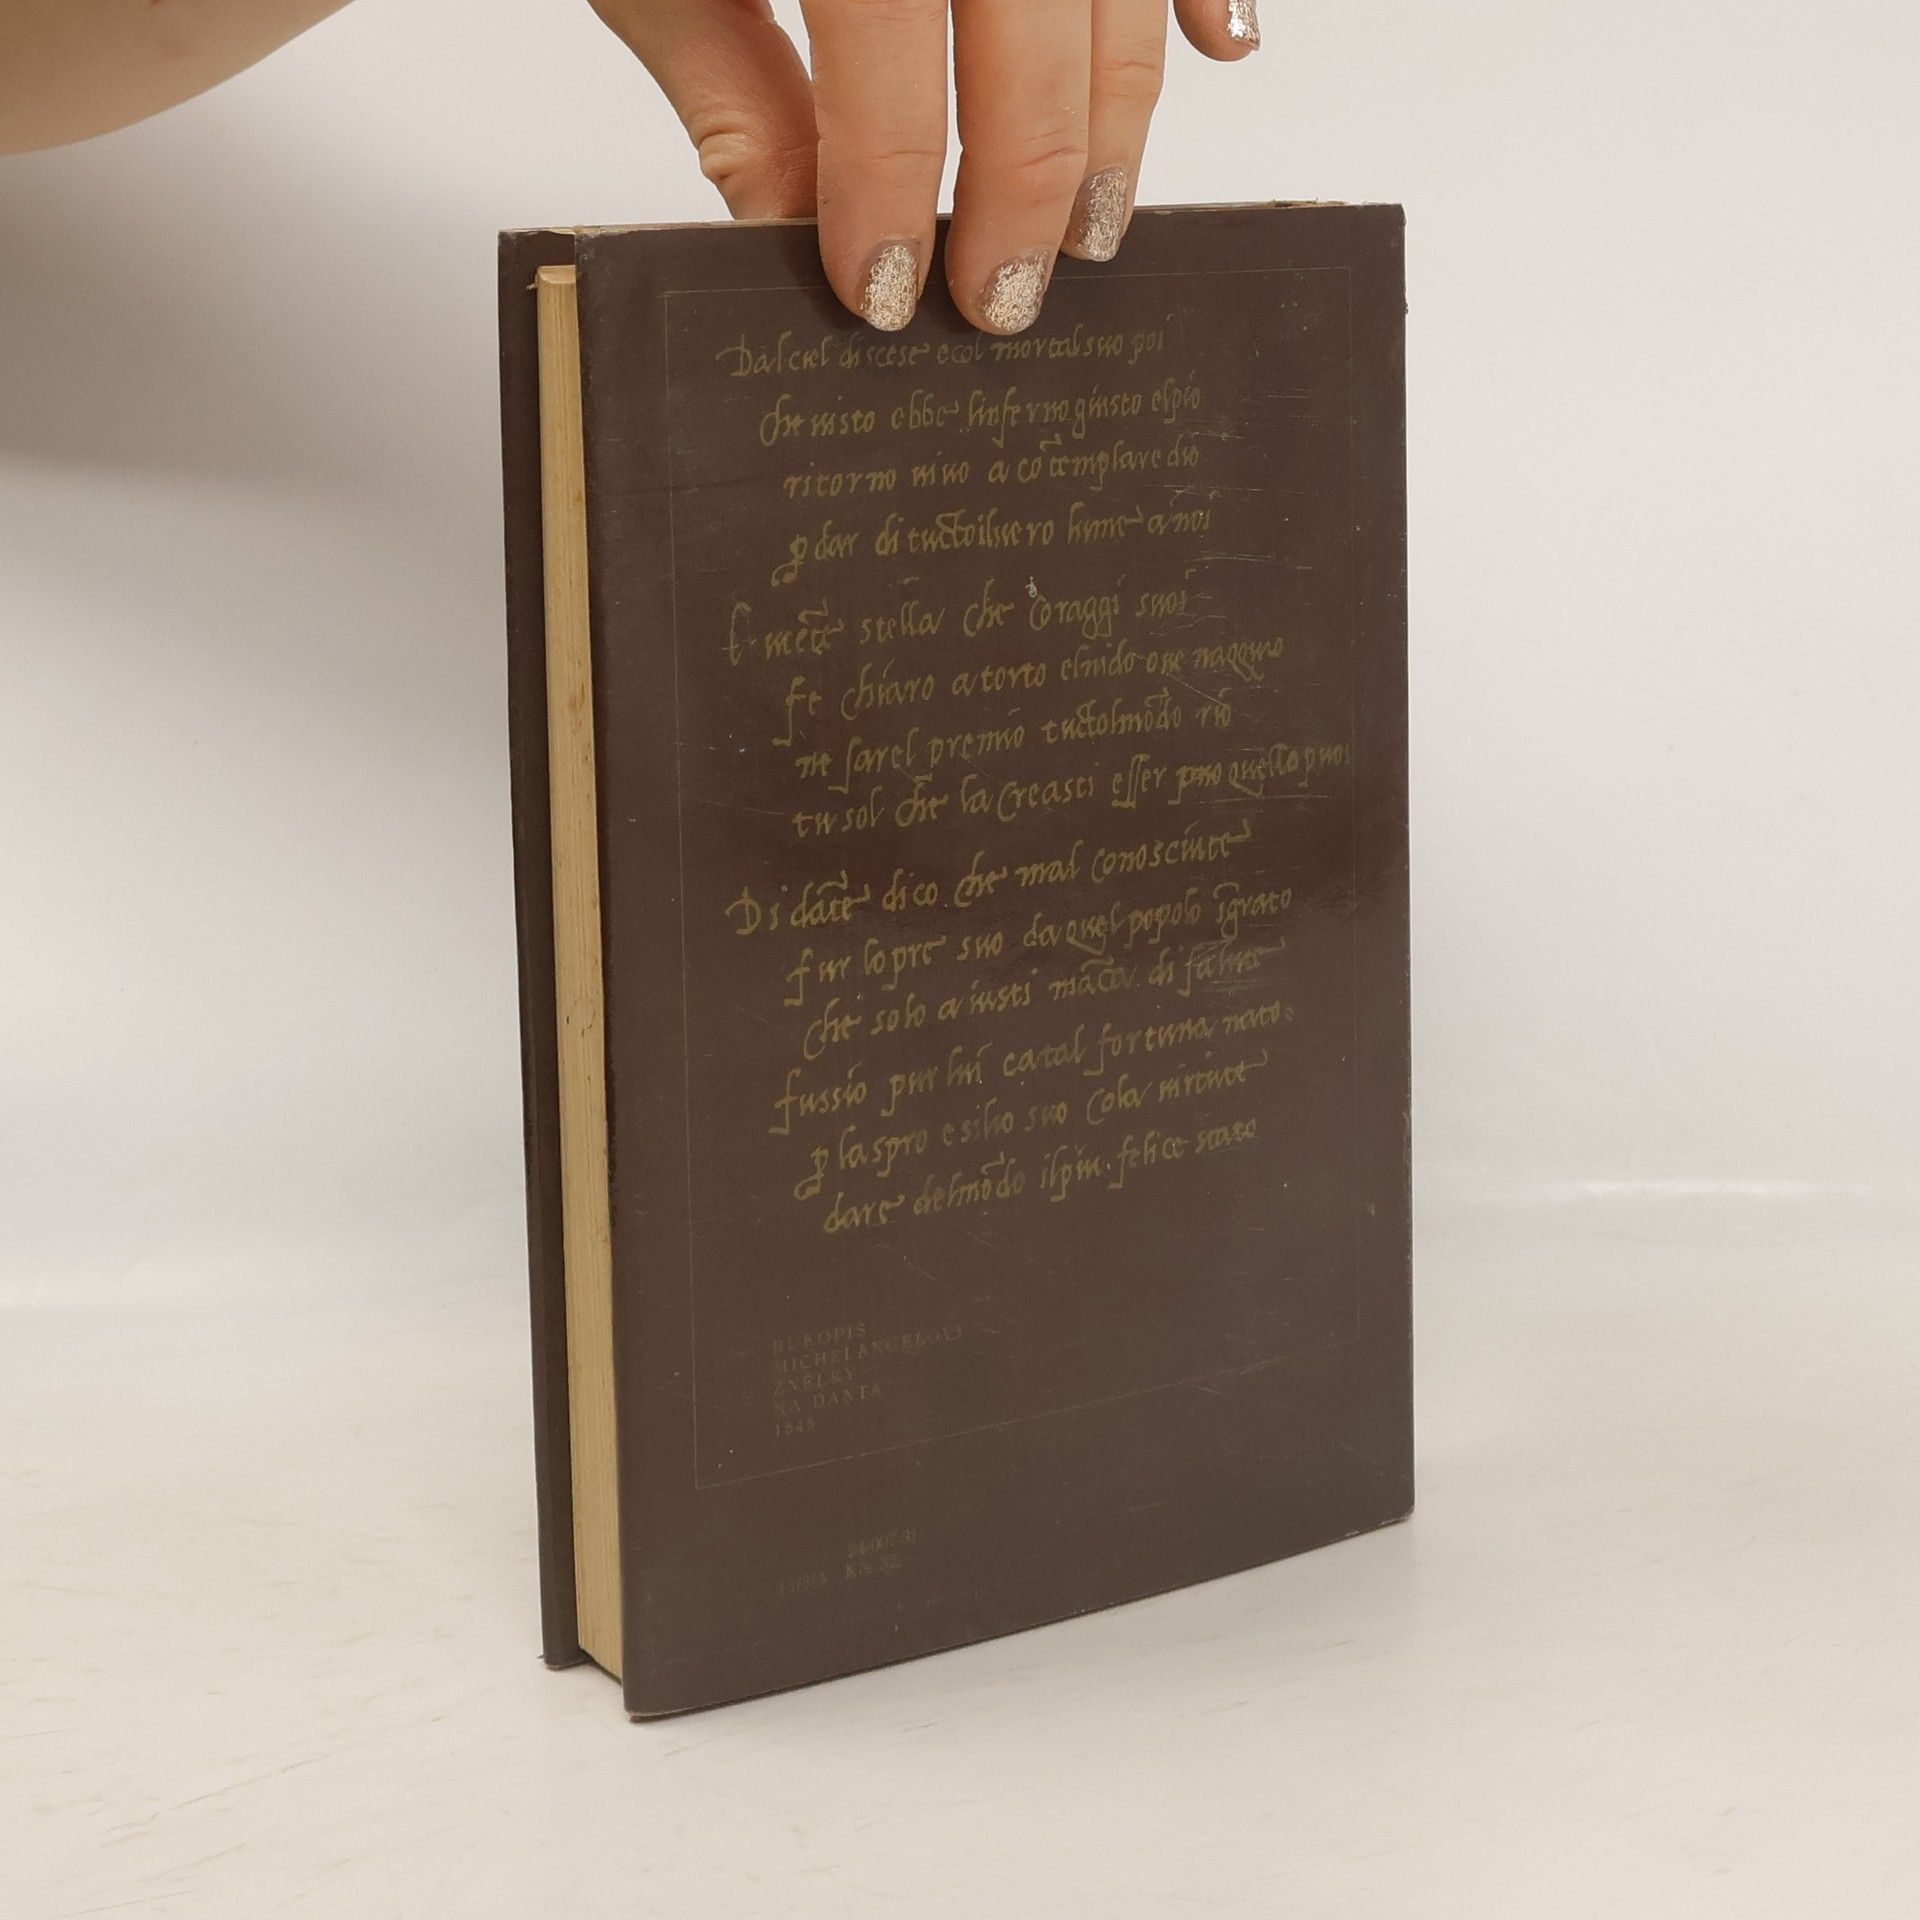 Dal ciel discese e col mortal suo poi
che uisto ebbe linferno giusto elpio
ritorno uiuo a cōtemplare dio
p dar di tucto iluero lume a noi
lucēte stella che coraggi suoi
fe chiaro a torto elnido oue naqquio
ne sarel premio tuctolmōdo rio
tu sol che la creasti esser puo quello puoi
Di dāte dico che mal conosciute
fur lopre suo da quel popolo īgrato
che solo a iusti māca di salute
fussio pur lui catal fortuna nato.
p laspro esilio suo cola uirtute
dare delmōdo ilpiu felice stato
RUKOPIS
MICHELANGELOVY
ZNĚLKY
NA DANTA
1545
24-007-81
Kčs 32